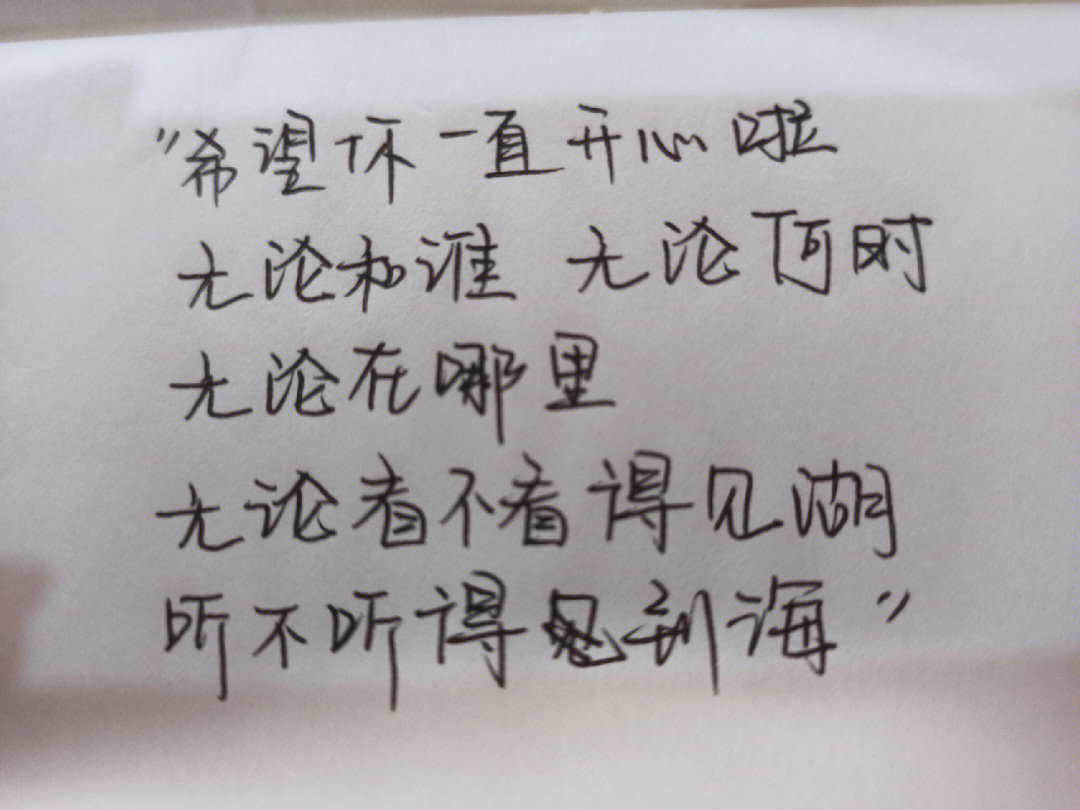 "希望你一直开心啦
无论和谁 无论何时
无论在哪里
无论看不看得见湖
听不听得到海"